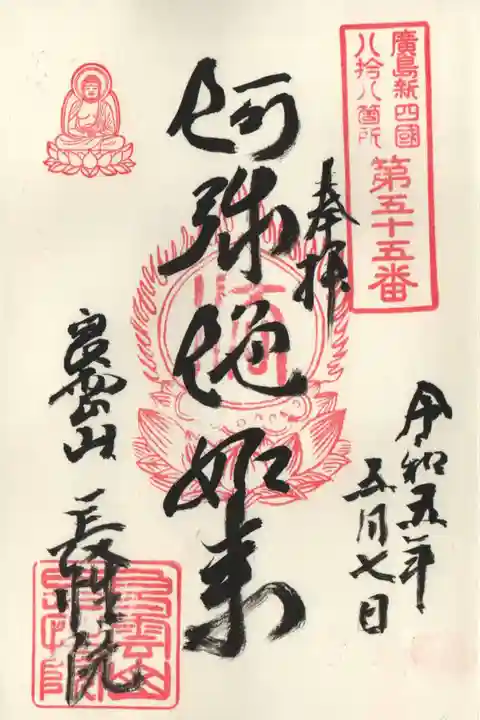 廣島新四國
八拾八箇所
第五十五番
奉拝
令和五年
五月七日
阿弥陀如来
雲山 長性院